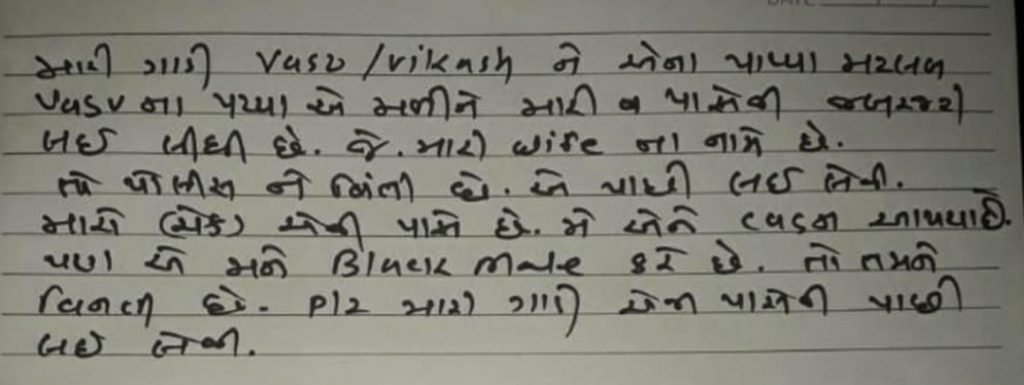 મારી ગાડી Vasu /vikash ને એના પાપ્પા મતલબ
Vasu ના પપ્પા એ મળીને મારી પાસેથી જબરજસ્તી
લઈ લીધી છે. જે. મારી wife ના નામે છે.
તો પોલીસ ને વિંતી છે. એ પાછી લઈ લેવી.
મારો (ચેક) એની પાસે છે. મેં એને આપ્યા છે.
પણ એ મને Black male કરે છે. તો તમને
વિનતી છે. Plz મારી ગાડી એના પાસેથી પાછી
લઈ લેવી.